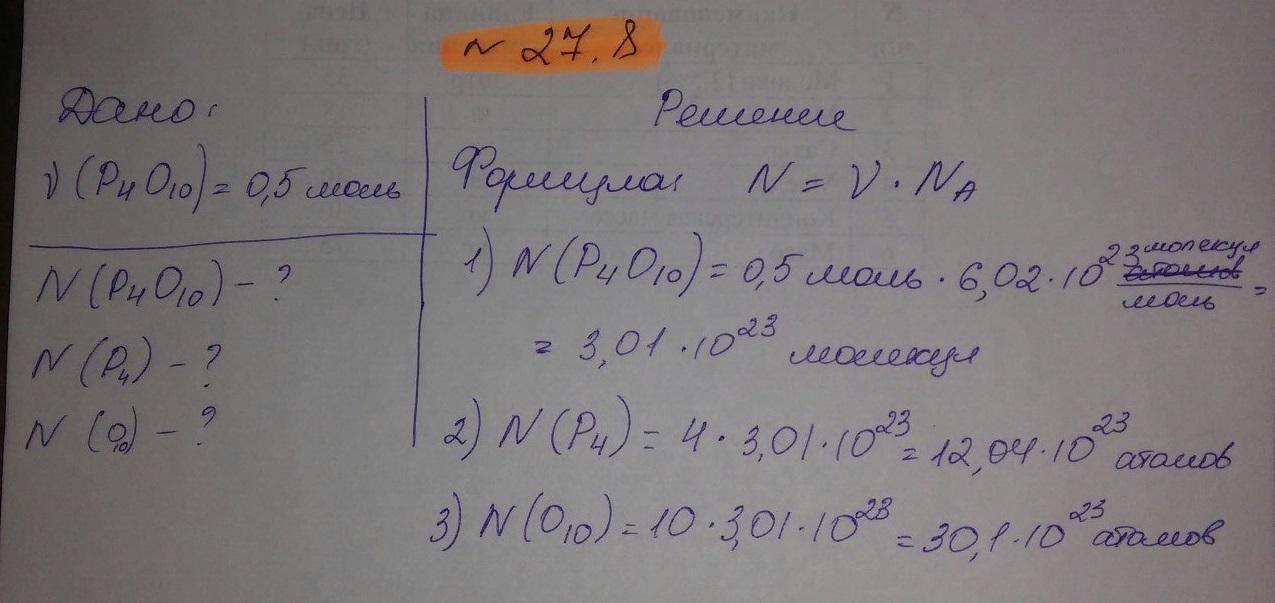 N 27.8
Дано:
ν (P₄O₁₀) = 0,5 моль
N (P₄O₁₀) - ?
N (P₄) - ?
N (O₁₀) - ?
Решение
Формула: N = ν · N_A
1) N (P₄O₁₀) = 0,5 моль · 6,02 · 10²³ молекул/моль =
= 3,01 · 10²³ молекул
2) N (P₄) = 4 · 3,01 · 10²³ = 12,04 · 10²³ атомов
3) N (O₁₀) = 10 · 3,01 · 10²³ = 30,1 · 10²³ атомов